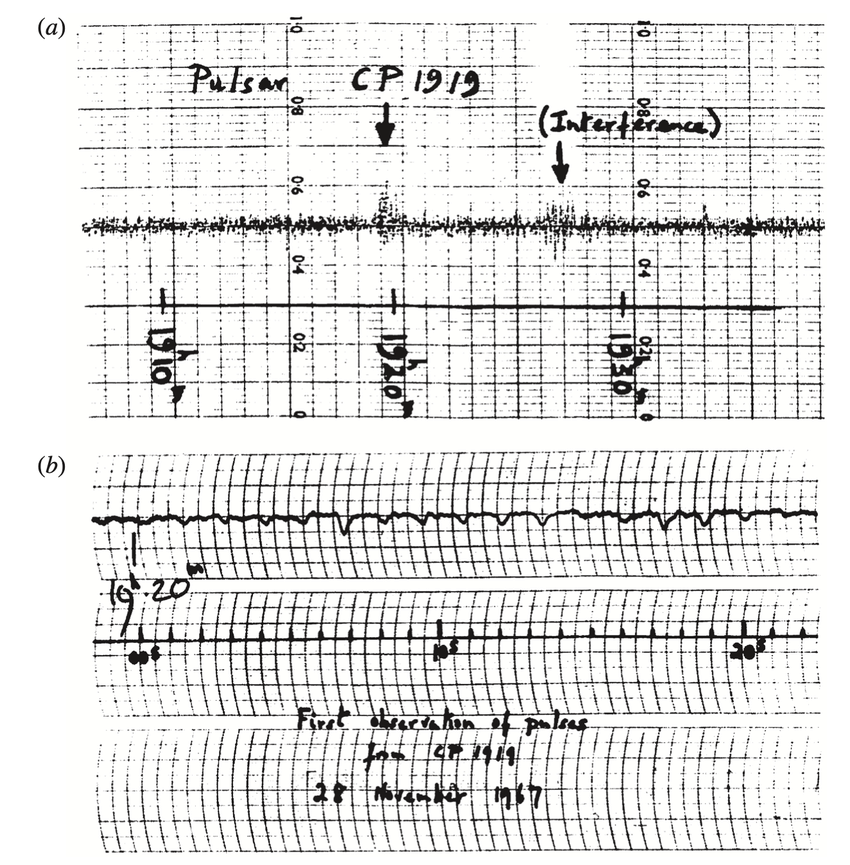 (a)
1·0 1·0
Pulsar CP 1919
0·8 0·8
(Interference)
0·6 0·6
0·4 0·4
0·2 0·2
19h10m 19h20m 19h30m
0 0
(b)
19h·20m
00s 10s 20s
First observation of pulses
from CP 1919
28 November 1967